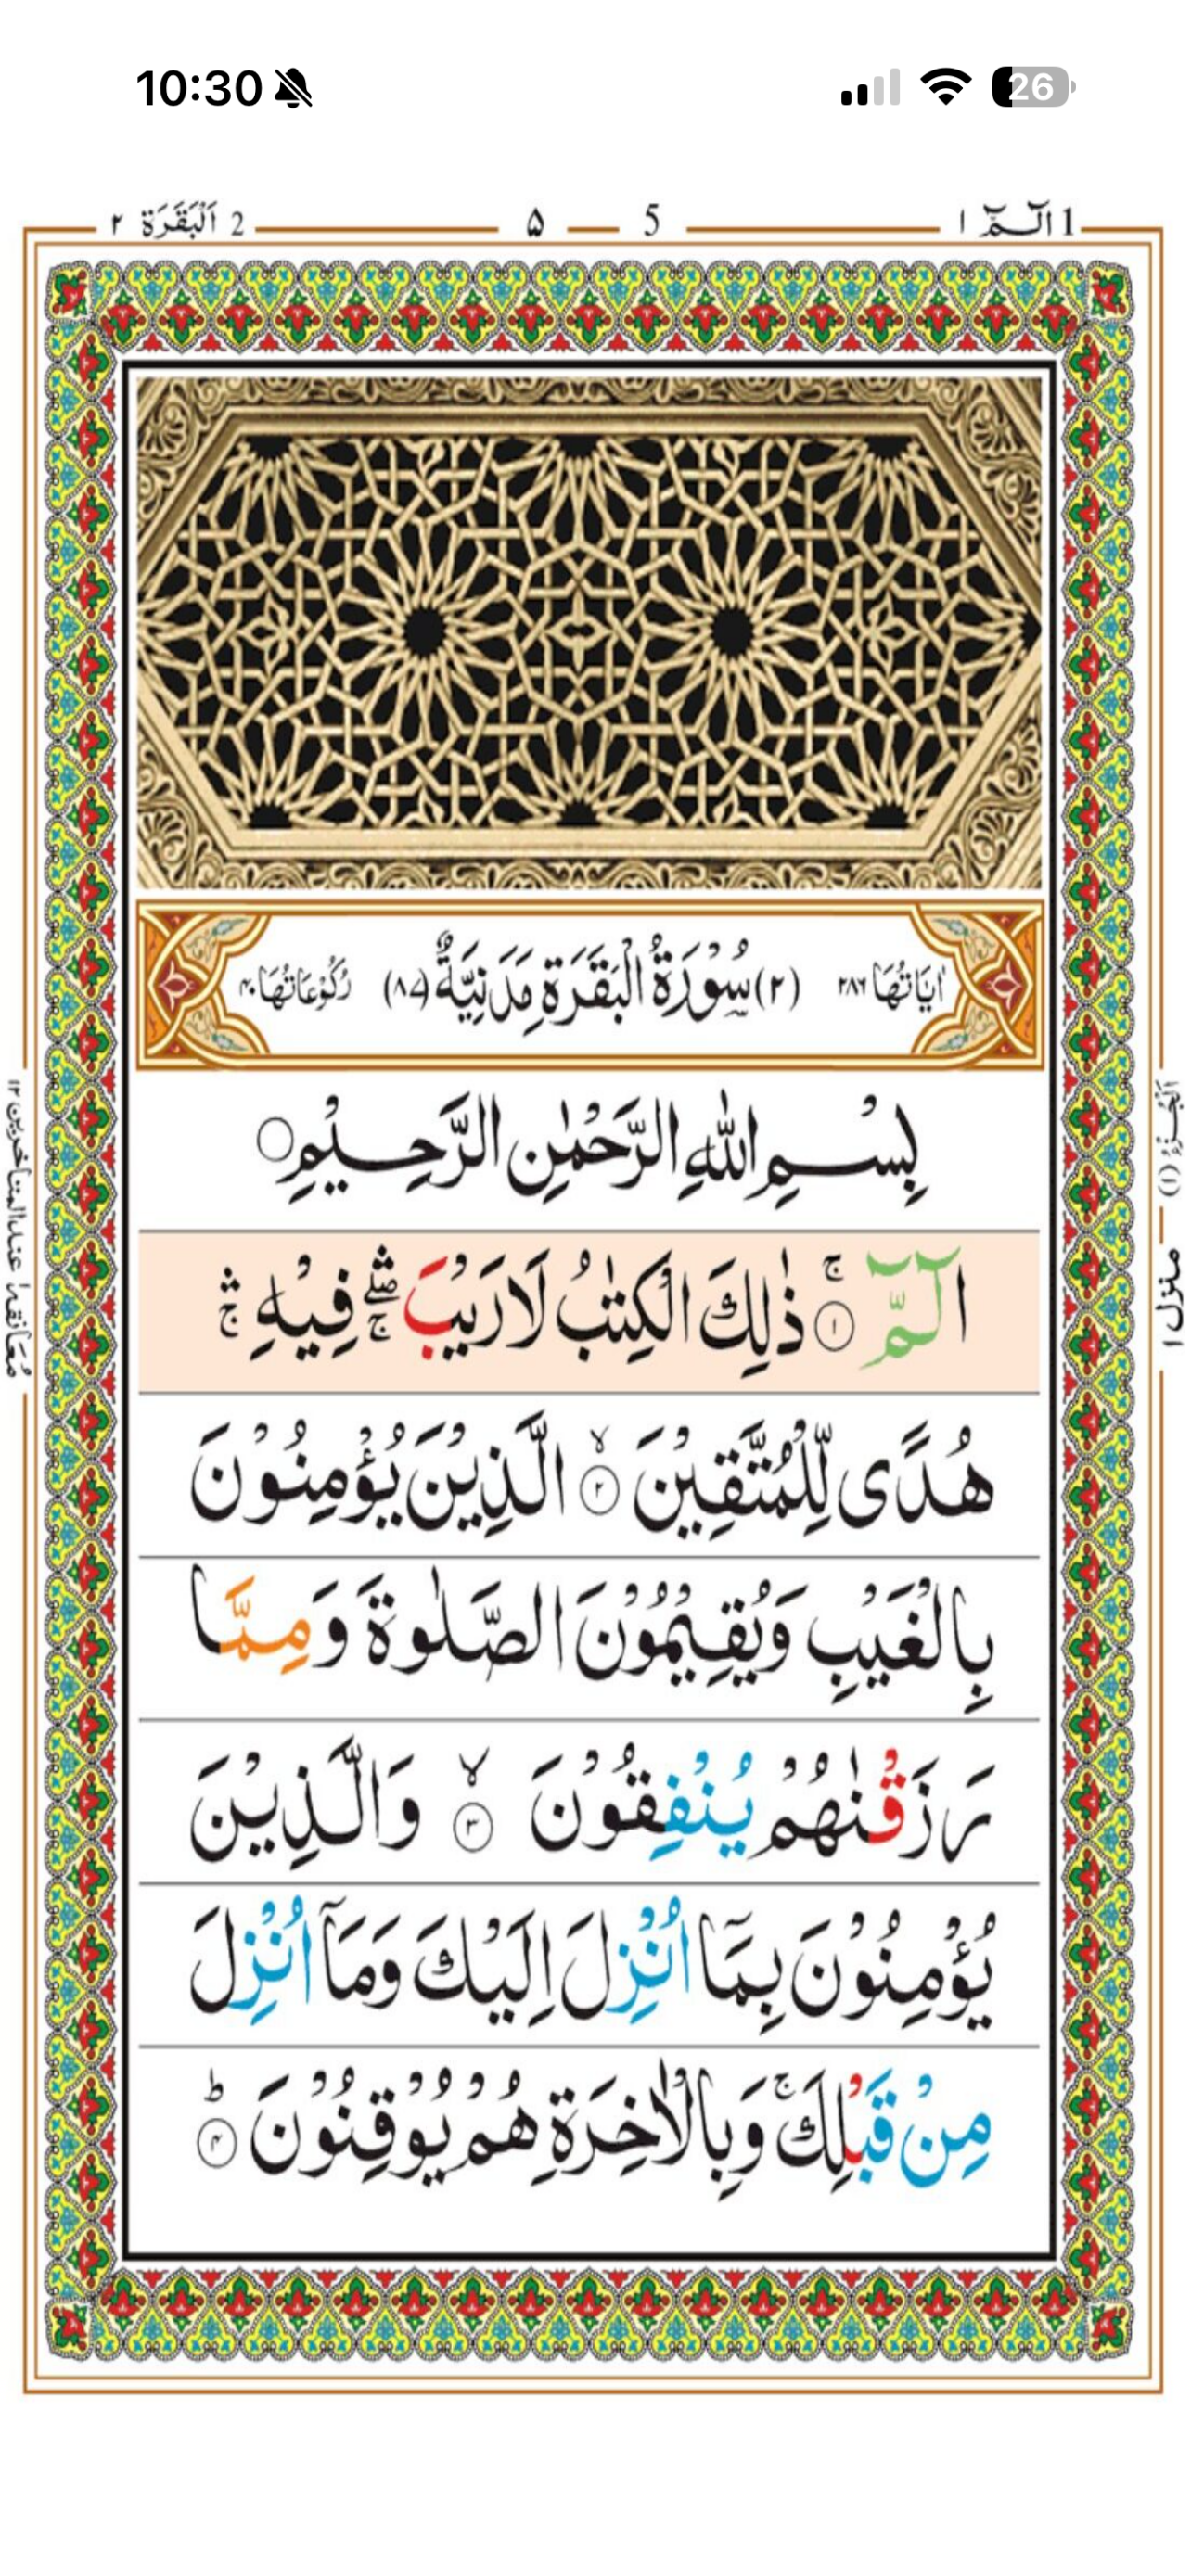 10:30
26
1 الٓـمّٓ ١
5 — ۵
2 اَلْبَقَرَة ٢
اٰيَاتُهَا ٢٨٦ (٢) سُوْرَةُ الْبَقَرَةِ مَدَنِيَّةٌ (٨٧) رُكُوْعَاتُهَا ٤٠
بِسْمِ اللّٰهِ الرَّحْمٰنِ الرَّحِيْمِ
الٓمّٓ ۚ ١ ذٰلِكَ الْكِتٰبُ لَا رَيْبَ ۛۖۚ فِيْهِ ۛۚ
هُدًى لِّلْمُتَّقِيْنَ ۙ ٢ الَّذِيْنَ يُؤْمِنُوْنَ
بِالْغَيْبِ وَيُقِيْمُوْنَ الصَّلٰوةَ وَمِمَّا
رَزَقْنٰهُمْ يُنْفِقُوْنَ ۙ ٣ وَالَّذِيْنَ
يُؤْمِنُوْنَ بِمَآ اُنْزِلَ اِلَيْكَ وَمَآ اُنْزِلَ
مِنْ قَبْلِكَ ۚ وَبِالْاٰخِرَةِ هُمْ يُوْقِنُوْنَ ؕ ٤
اَلْجُزْءُ (١)
منزل ١
معانقة ١ عند المتاخرين ١٢